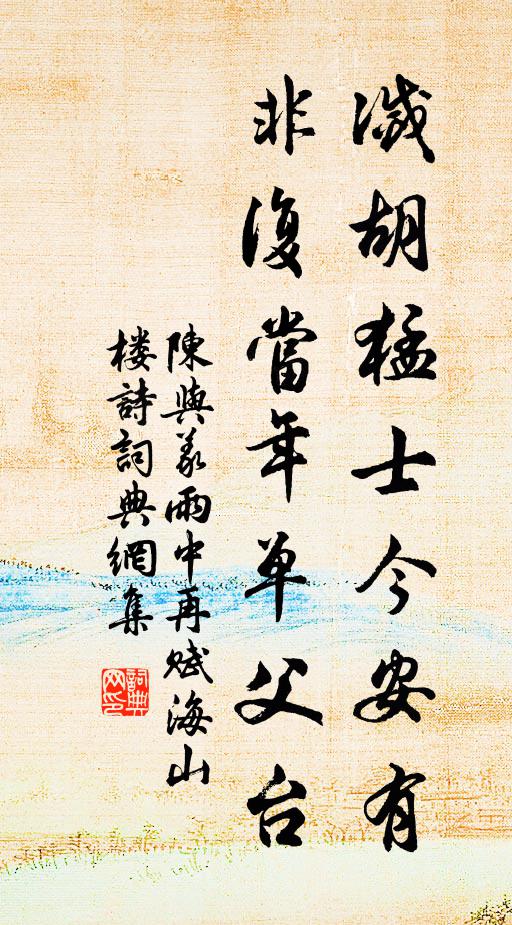 滅胡猛士今安有
非復當年單父台
陳與義雨中再賦海山
楼詩詞典網集
詞典
网印